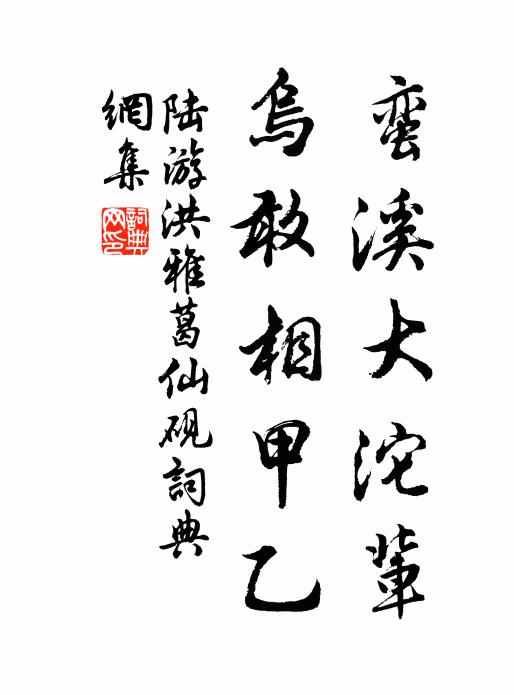 蛮溪大沱輩
烏敢相甲乙
陆游洪雅葛仙砚詞典
網集
詞典网印